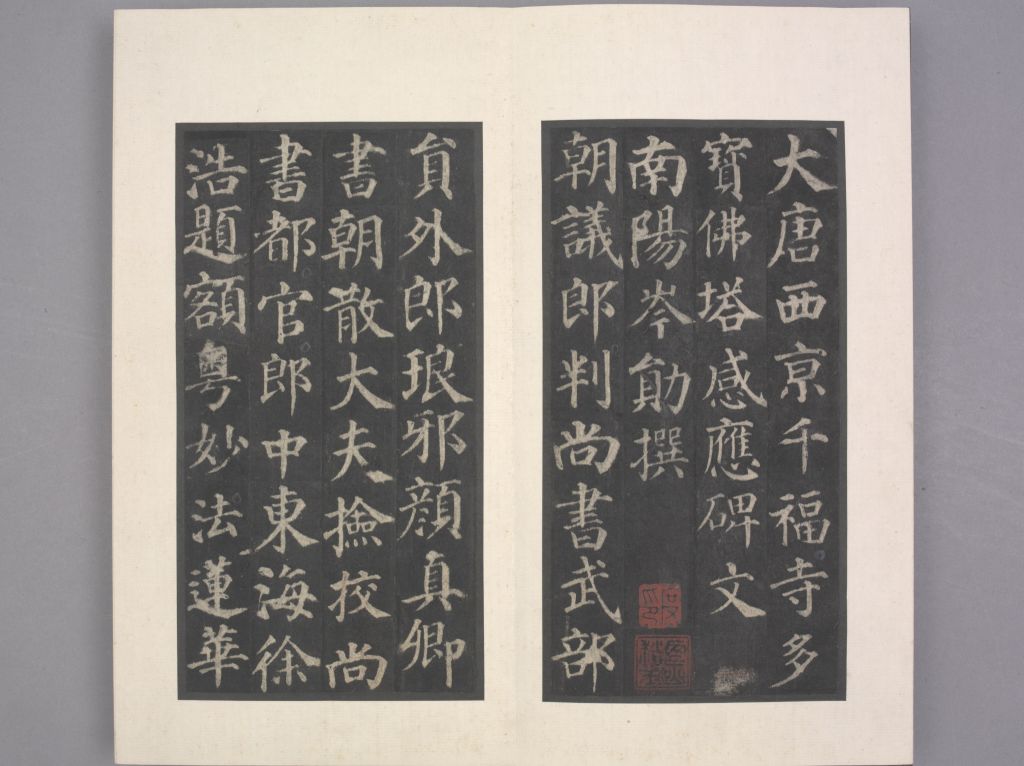 大唐西京千福寺多
寶佛塔感應碑文
南陽岑勛撰
朝議郎判尚書武部
貟外郎琅邪顏真卿
書朝散大夫撿挍尚
書都官郎中東海徐
浩題額粵妙法蓮華